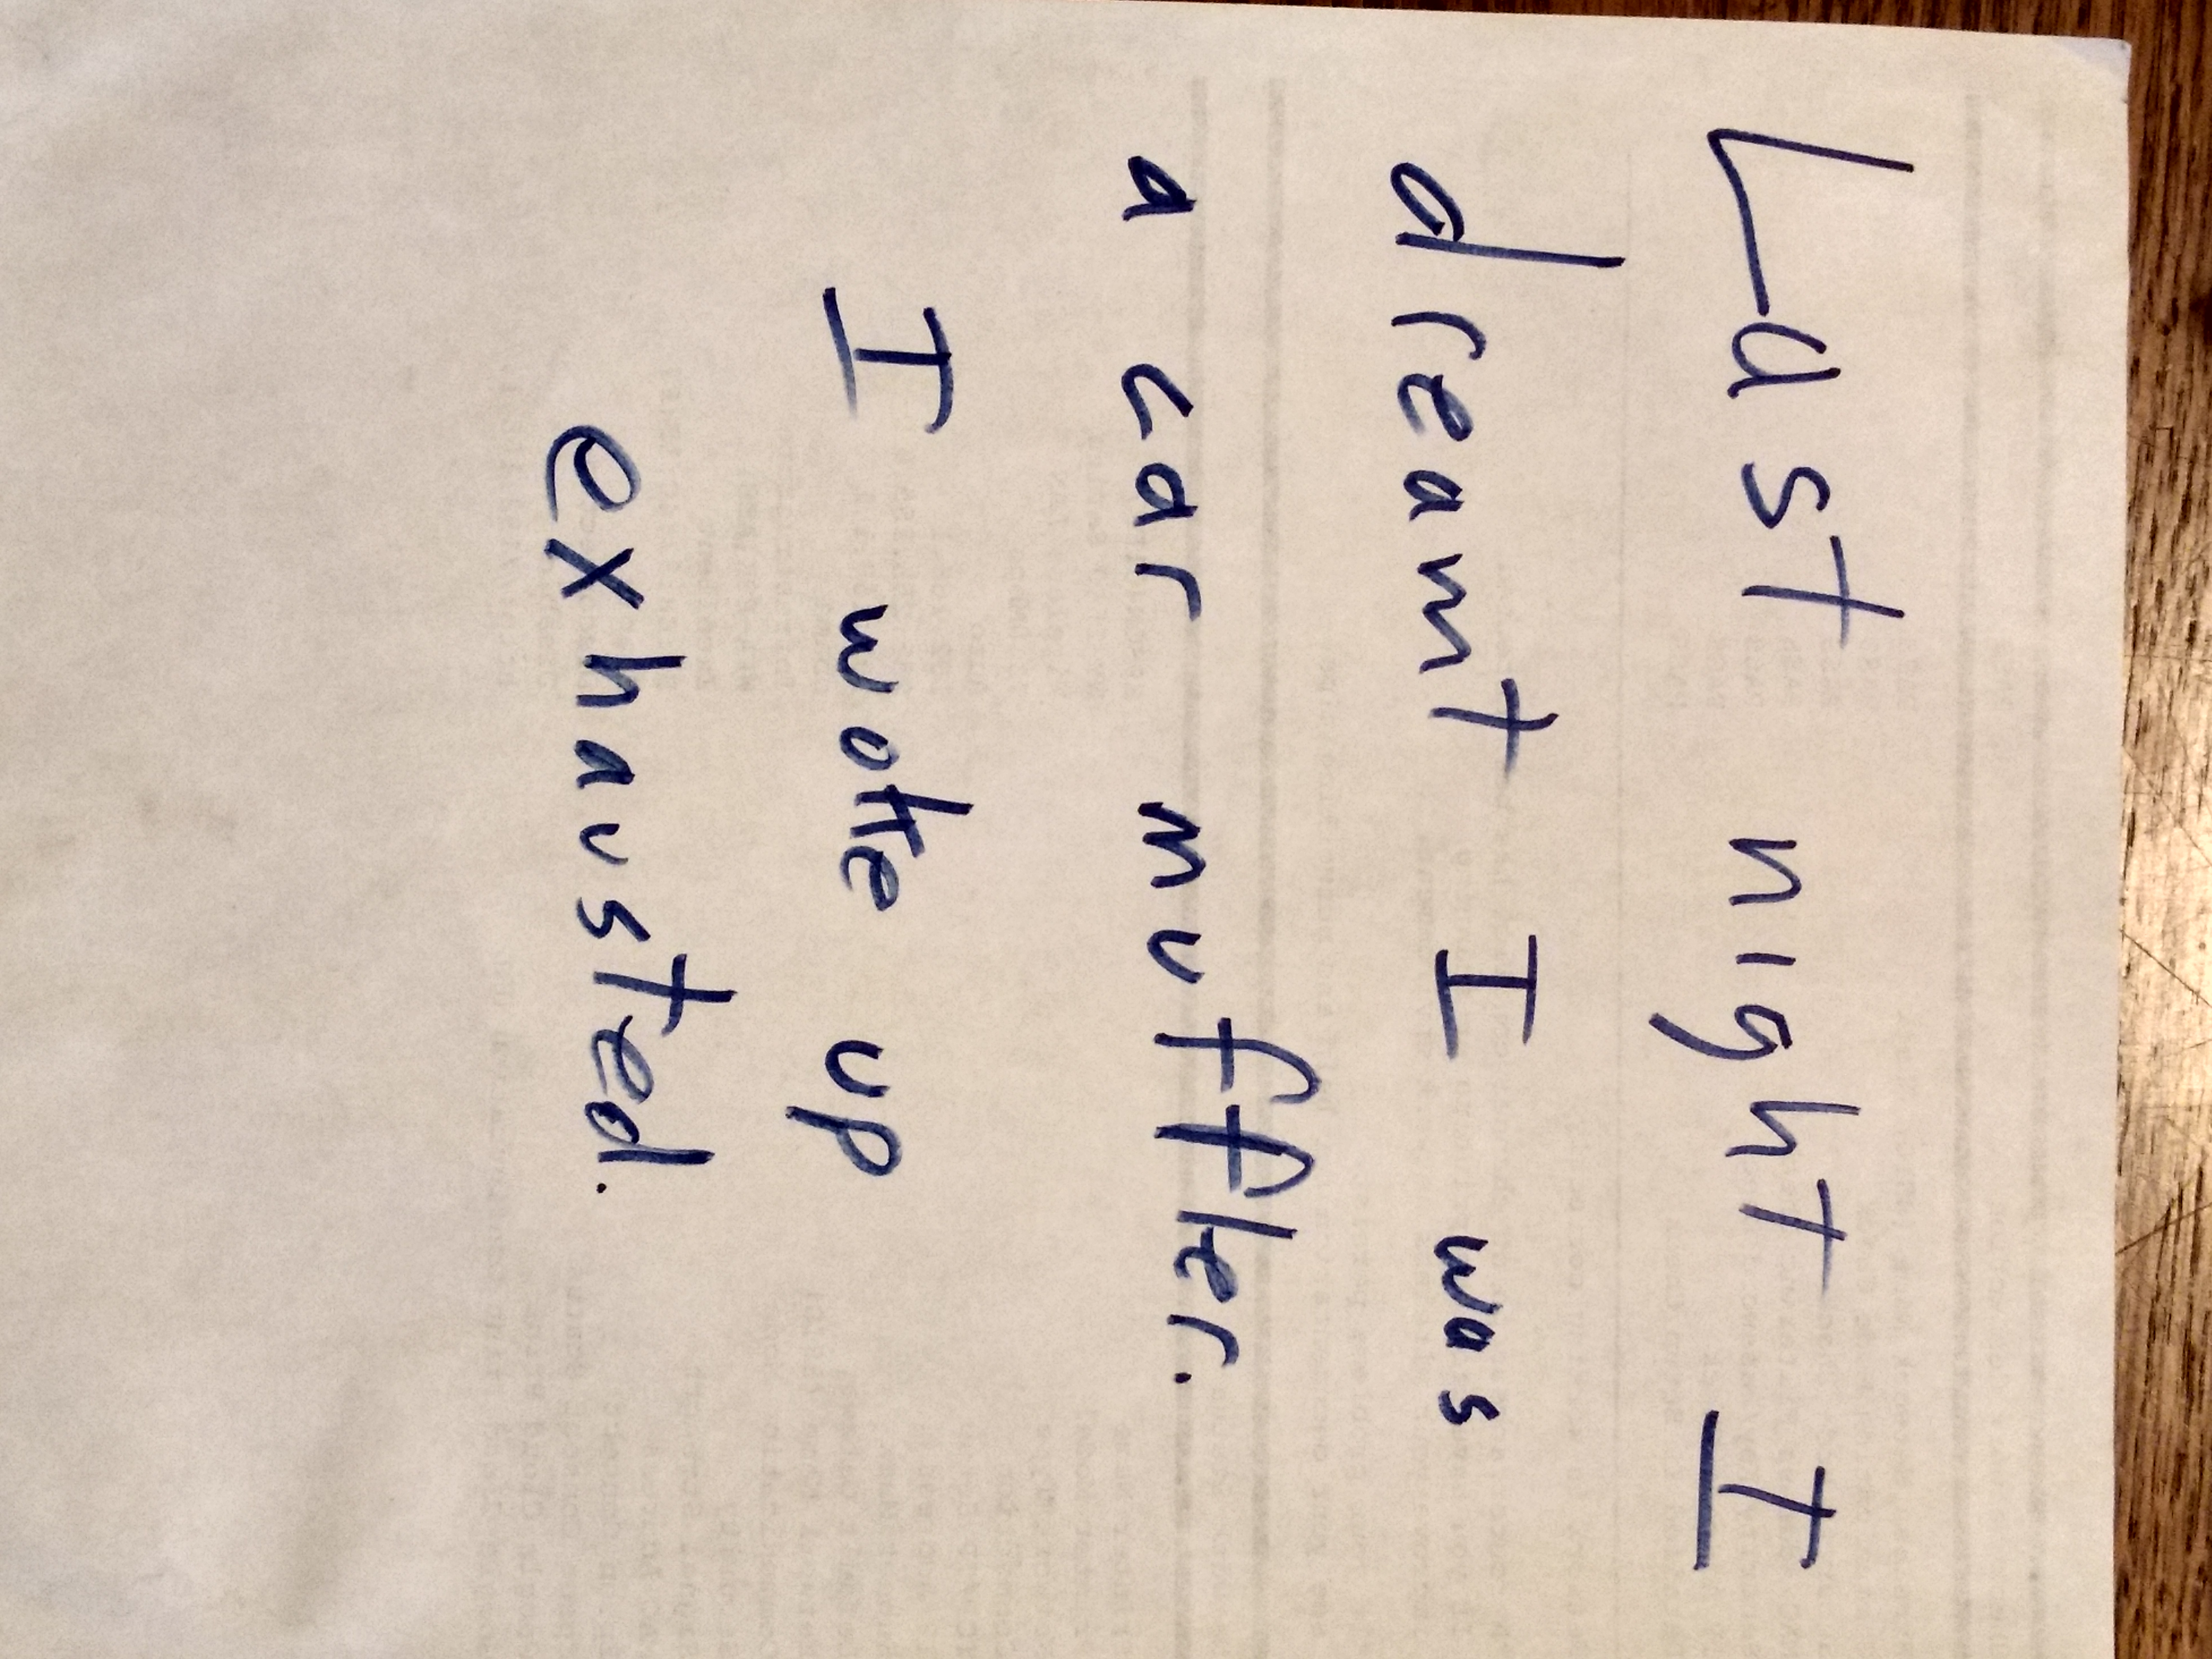 Last night I
dreamt I was
a car muffler.
I woke up
exhausted.